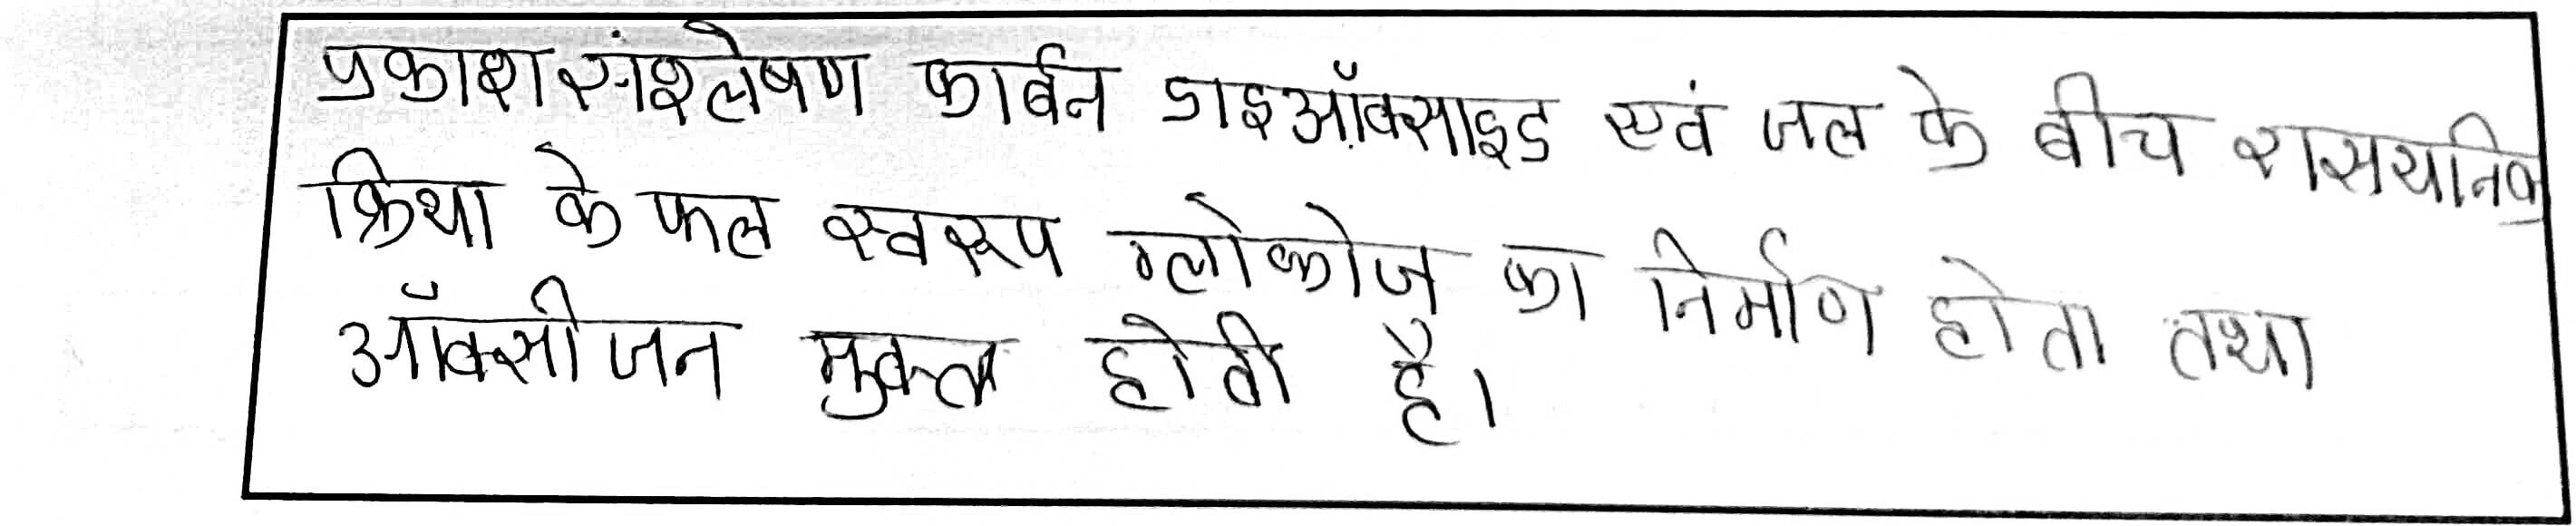 प्रकाश संश्लेषण कार्बन डाइऑक्साइड एवं जल के बीच रासयनिक
क्रिया के फल स्वरूप ग्लोकोज का निर्माण होता तथा
ऑक्सीजन मुक्त होती है।